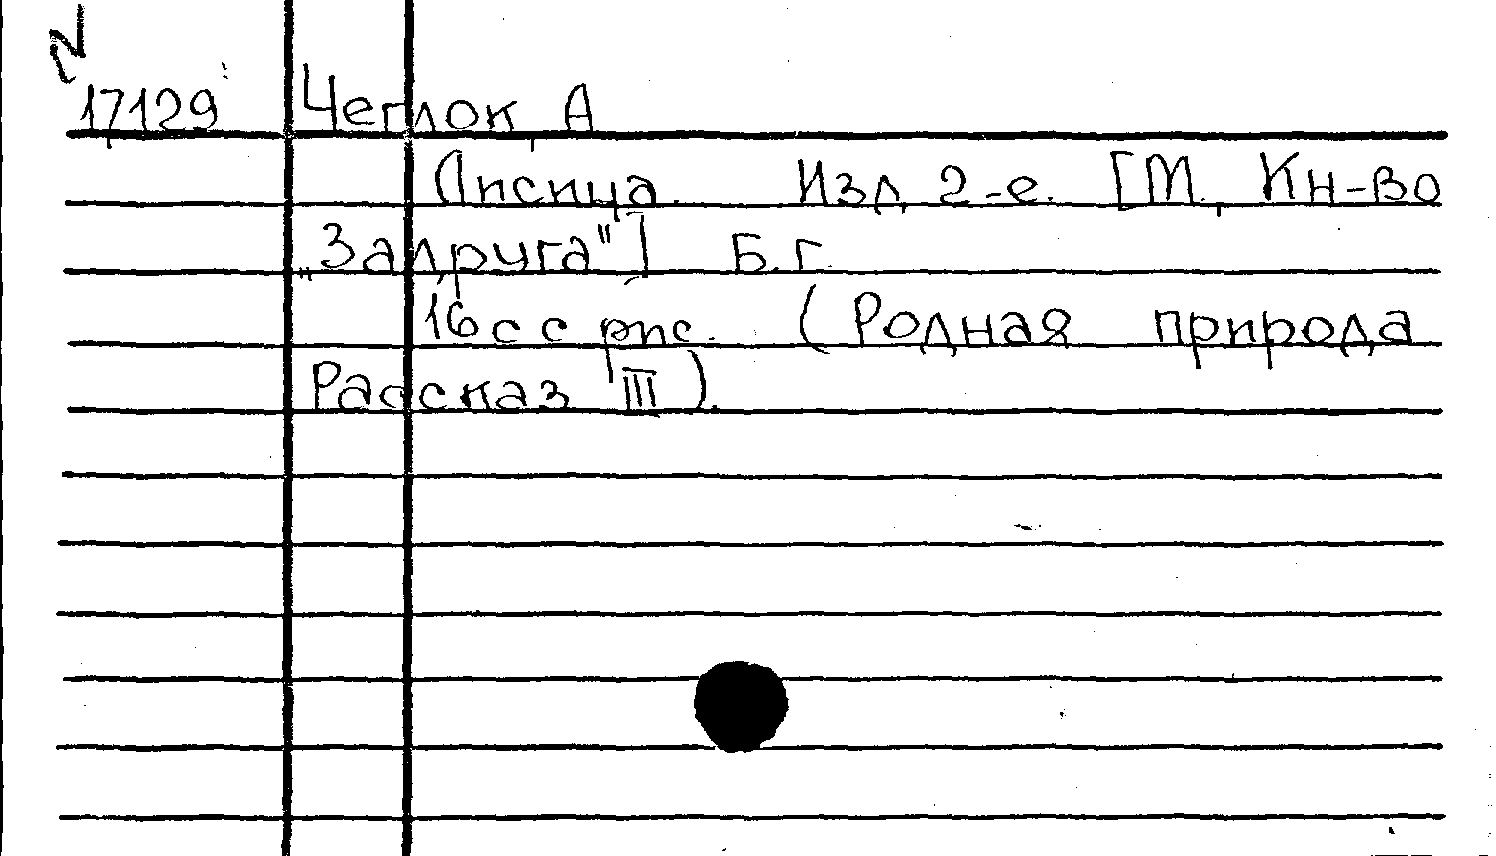 17129 Чеглок, А
Лисица. Изд. 2-е. [М., Кн-во
„Задруга"] Б.г.
16 с с рис. (Родная природа
Рассказ III).